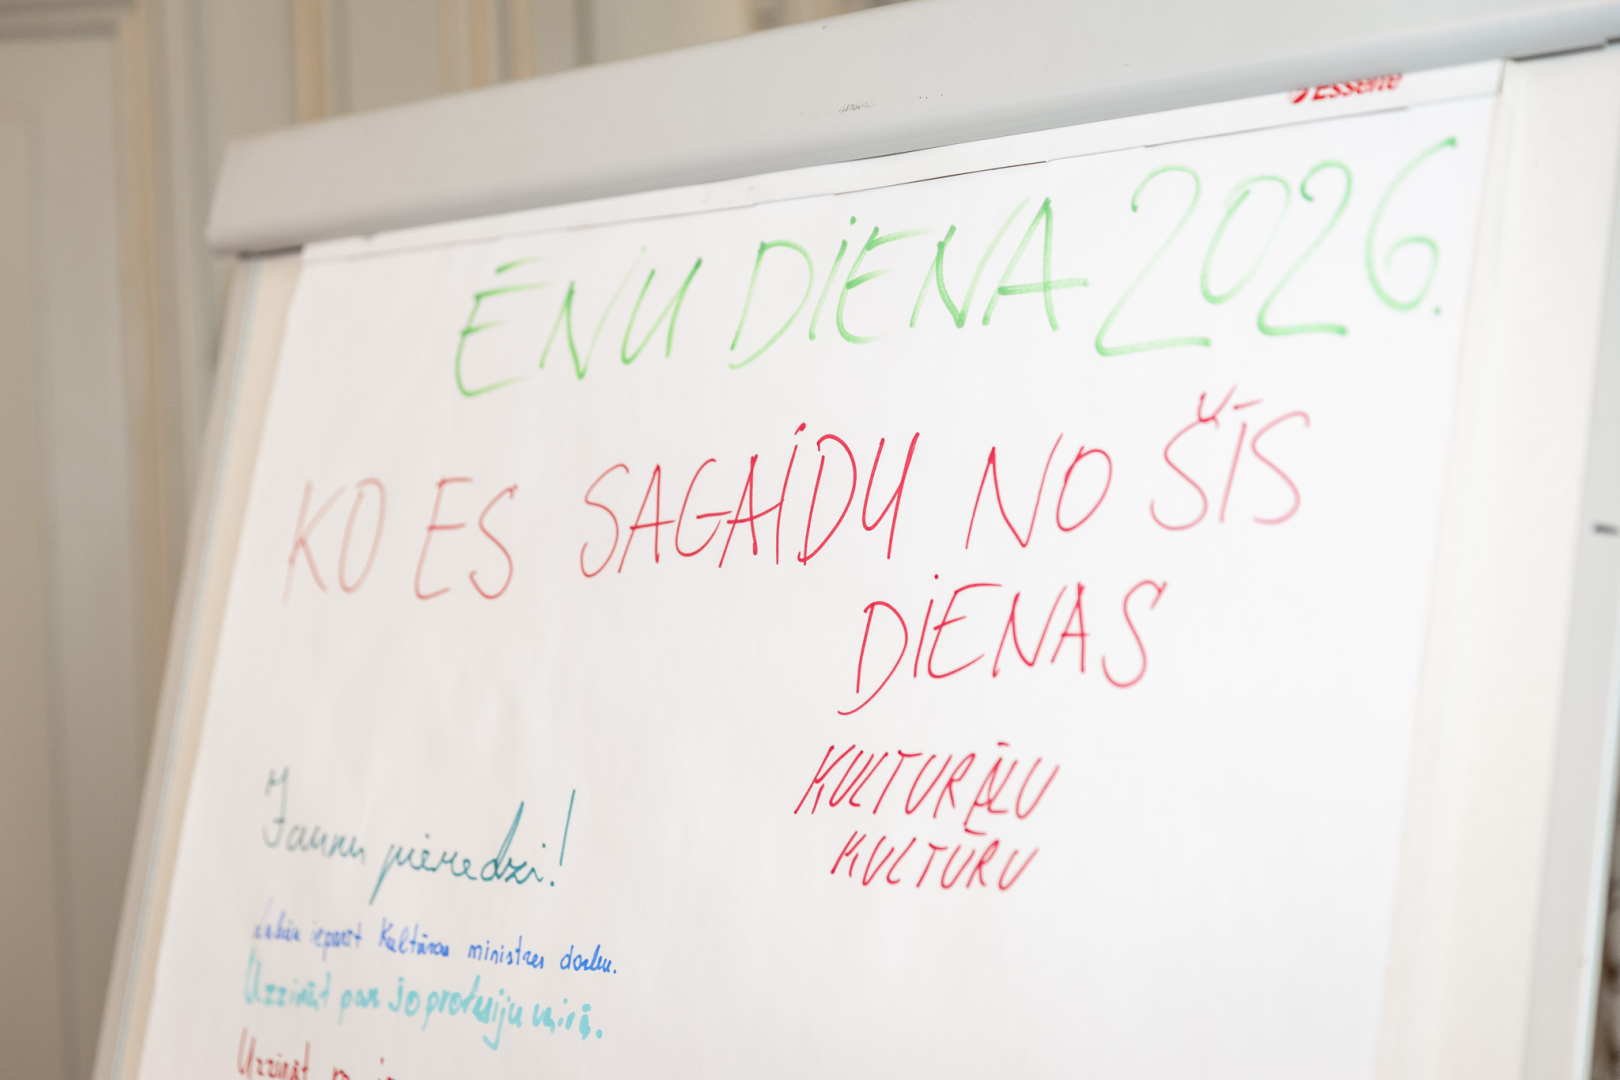 Esselte
ĒNU DIENA 2026.
KO ES SAGAIDU NO ŠĪS
DIENAS
KULTURĀLU
KULTŪRU
Jaunu pieredzi!
Labāk iepazīt Kultūras ministres darbu.
Uzzināt par šo profesiju vairāk.
Uzzināt